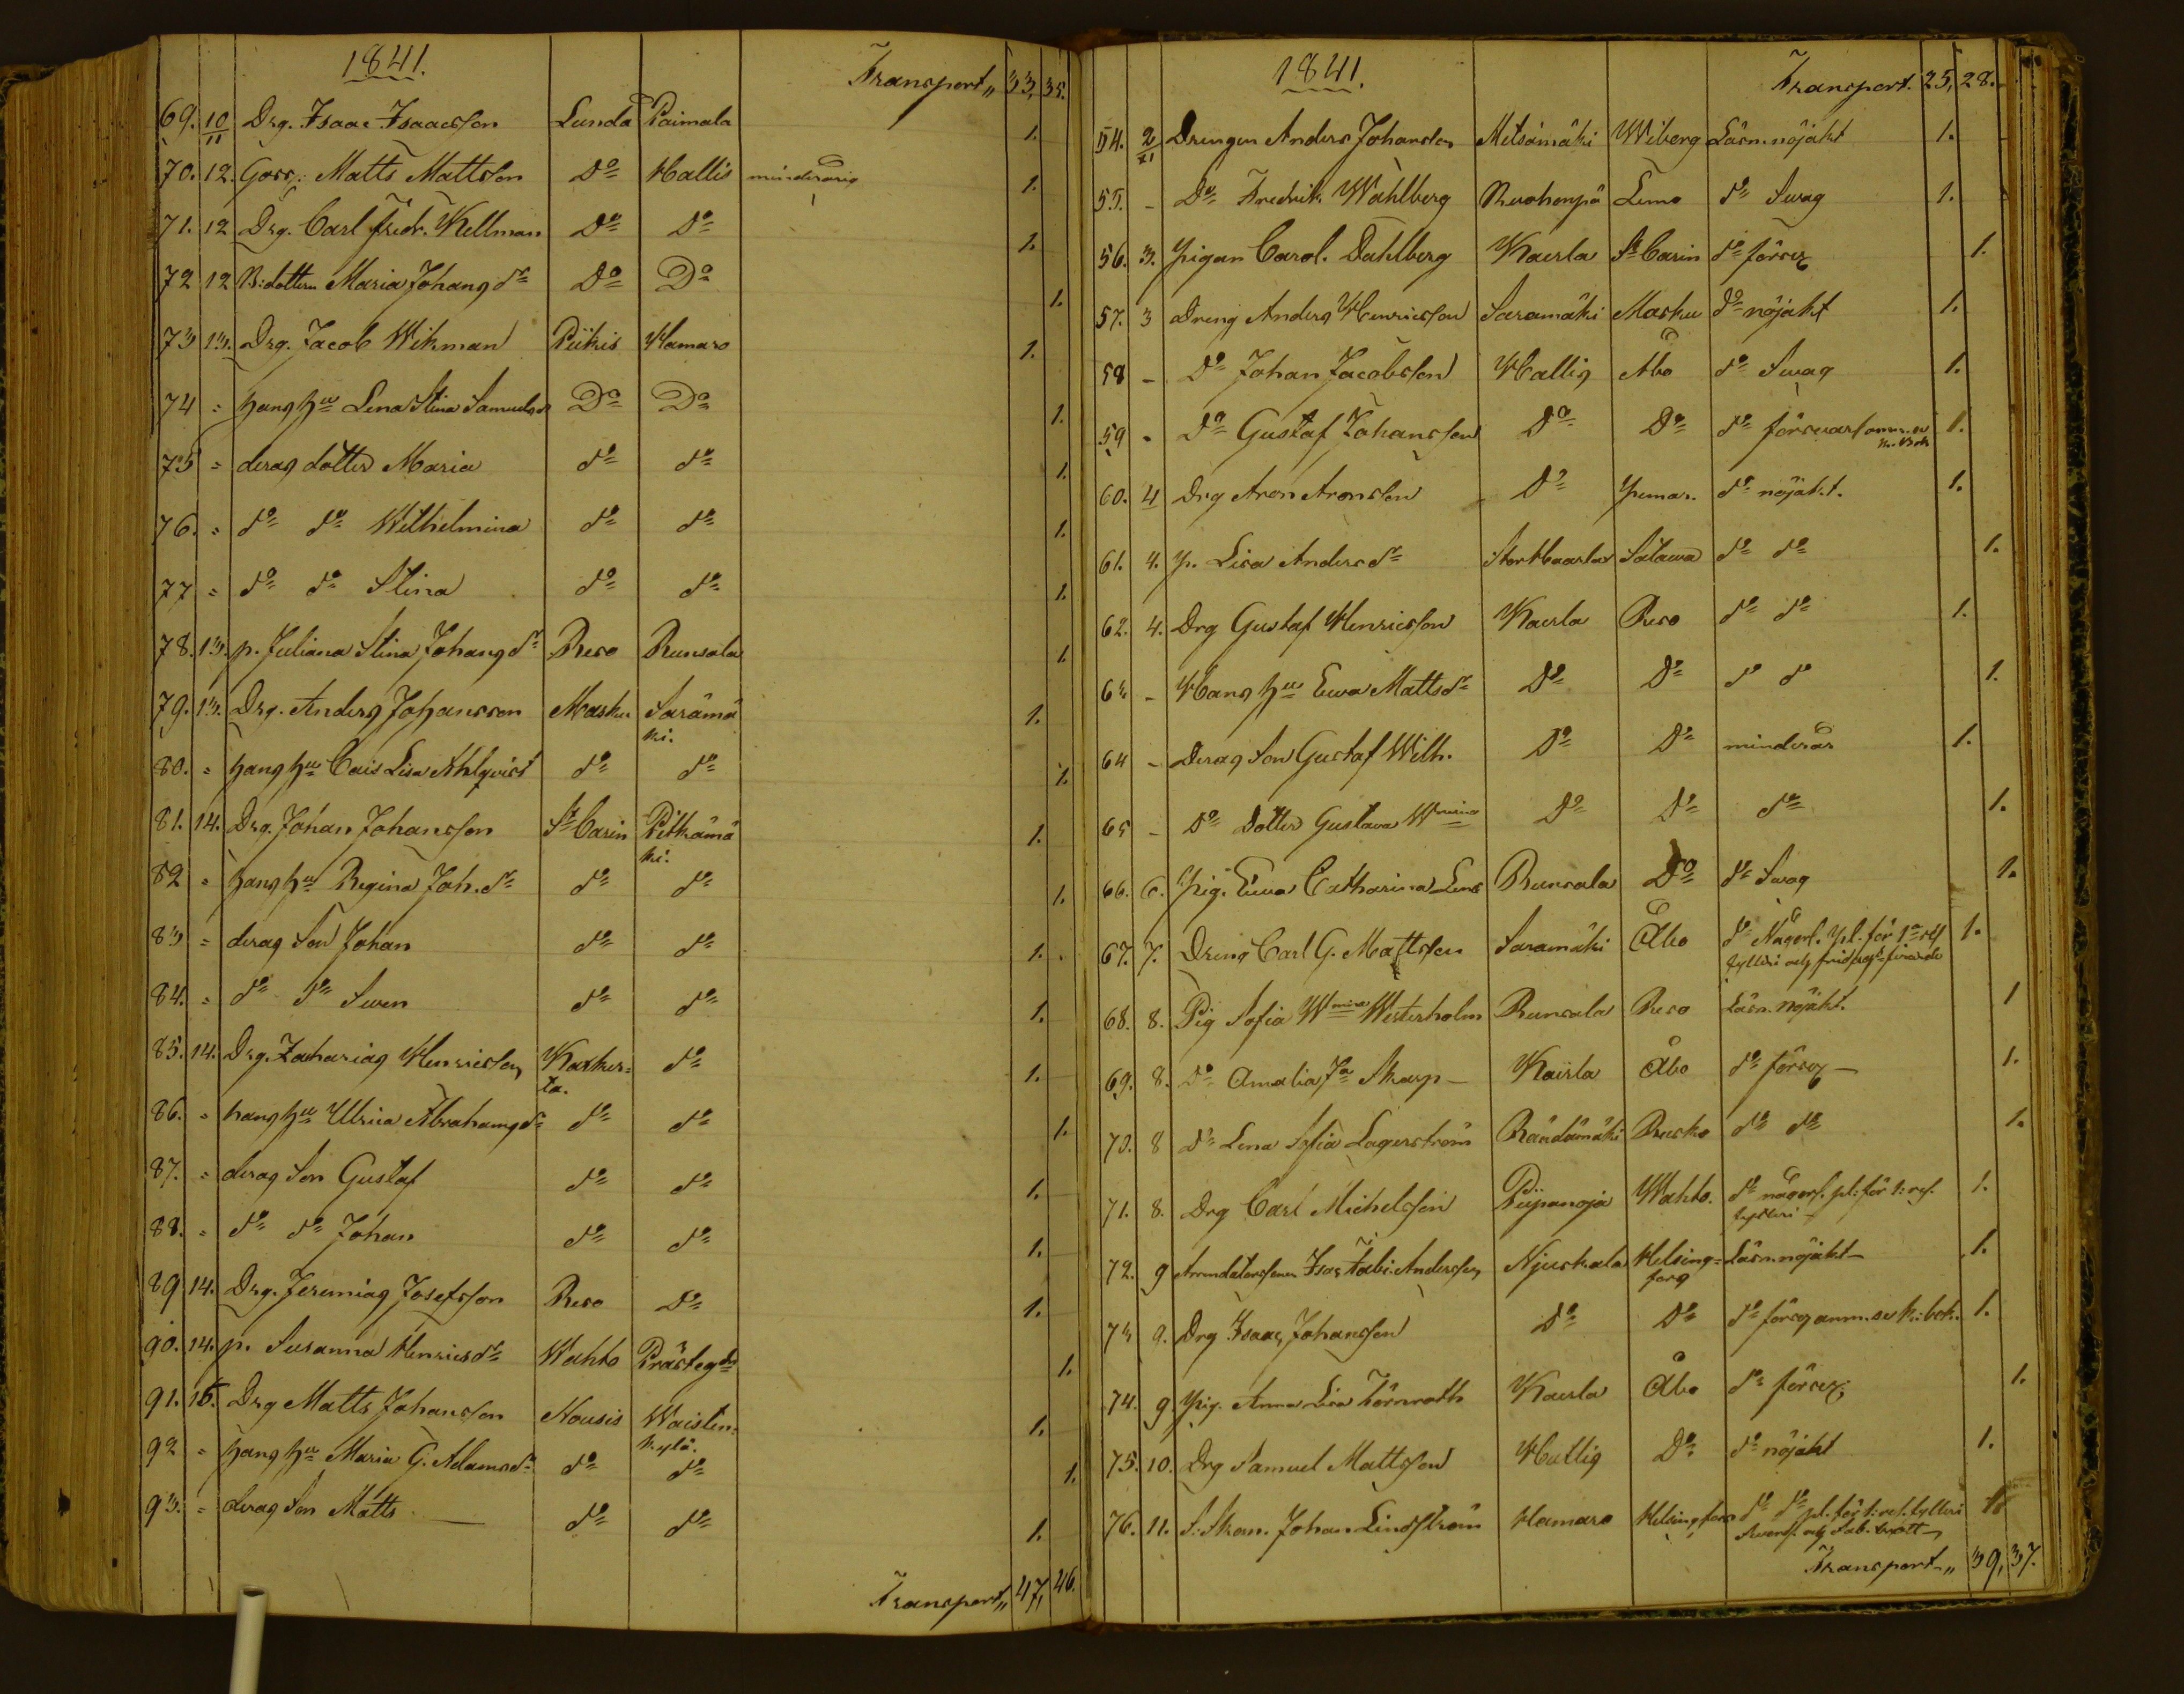 1841.
Transport„ 33, 35.
69. 10/11 Drg. Isaac Isaacsson Lundå Paimala 1.
70. 12. Goss: Matts Mattsson Do Hallis minderårig 1.
71. 12 Drg. Carl Fredr. Kellman Do Do 1.
72 12 B:dottern Maria Johansdr Do Do 1.
73 13. Drg. Jacob Wikman Piikis Hamaro 1.
74 = hans hu Lena Stina Samuelsdr Do Do 1.
75 = deras dotter Maria do do 1.
76. = do do Wilhelmina do do 1.
77 = do do Stina do do 1.
78. 13. p. Juliana Stina Johansdr Reso Runsala 1.
79. 13. Drg. Anders Johansson Masku Saramä 1.
ki.
80. = hans hu Cais Lisa Ahlqvist do do 1.
81. 14. Drg. Johan Johansson St Carin Pitkämä 1.
ki.
82 = hans hu Regina Joh.dr do do 1.
83 = deras Son Johan do do 1.
84. = do do Sven do do 1.
85. 14. Drg. Zacharias Henricsson Kasker= do 1.
ta.
86. = hans hu Ulrica Abrahamsdr do do 1.
87. = deras Son Gustaf do do 1.
88. = do do Johan do do 1.
89 14. Drg. Jeremias Josefsson Reso Do 1.
90. 14. p. Susanna Henricsdr Wahto Prästegdn 1.
91. 15. Drg Matts Johansson Nousis Waisten= 1.
kylä.
92 = hans hu Maria G. Adamsdr do do 1.
93. = deras Son Matts do do 1.
Transport„ 47, 46.
1841.
Transport. 25, 28.
54. 2/11 Drengen Anders Johansson Metsämäki Wiborg Läsn. nöjakt 1.
55. - Do Fredrik Wahlberg Ruohonpä Lemo do Svag 1.
56. 3. Pigan Carol. Dahlberg Kaerla St Carin do försv. 1.
57. 3 Dreng Anders Henricsson Saramäki Masku do nöjakt 1.
58 - Do Johan Jacobsson Hallis Åbo do Svag 1.
59 - Do Gustaf Johansson Do Do do försvarl anm. se 1.
K. Bok
60. 4 Drg Aron Aronsson Do Pemar. do nöjakt. 1.
61. 4. p. Lisa Andersdr StorHaarla Salawa do do 1.
62. 4. Drg Gustaf Henricsson Kaerla Reso do do 1.
63 - Hans hu Ewa Mattsdr Do Do do do 1.
64 - Deras Son Gustaf Wilh. Do Do minderår 1.
65 - Do Dotter Gustava Wmina Do Do do 1.
66. 6. Pig. Ewa Catharina Lens Runsala Do do Svag 1.
67. 7. Dreng Carl G. Mattsson Saramäki Åbo do Någorl. pl. för 1a res 1.
fylleri och
68. 8. Pig Sofia Wmina Westerholm Runsala Reso Läsn. Nöjakt. 1
69. 8. Do Amalia Ja Skarp Kairla Åbo do försv. 1.
70. 8 Do Lena Sofia Lagerström Räudämäki Rusko do do 1.
71. 8. Drg Carl Michelsson Piipanoja Wahto. do någorl. pl. för 1: res. 1.
fylleri
72. 9 Arrendatorssonen Isac Tobi. Andersson Njuskala Helsing= Läsn. nöjakt 1.
fors
73 9. Drg Isaac Johansson Do Do do försv. anm. se K: bok. 1.
74. 9 Pig. Anna Lisa Törnroth Kaerla Åbo do försv. 1.
75. 10. Drg Samuel Mattsson Hallis Do do nöjakt 1.
76. 11. S: Skom. Johan Lindström Hamaro Helsingfors do do pl. för 1: res. fylleri 1.
Sverj. och Sab. brott
Transport„ 39, 37.